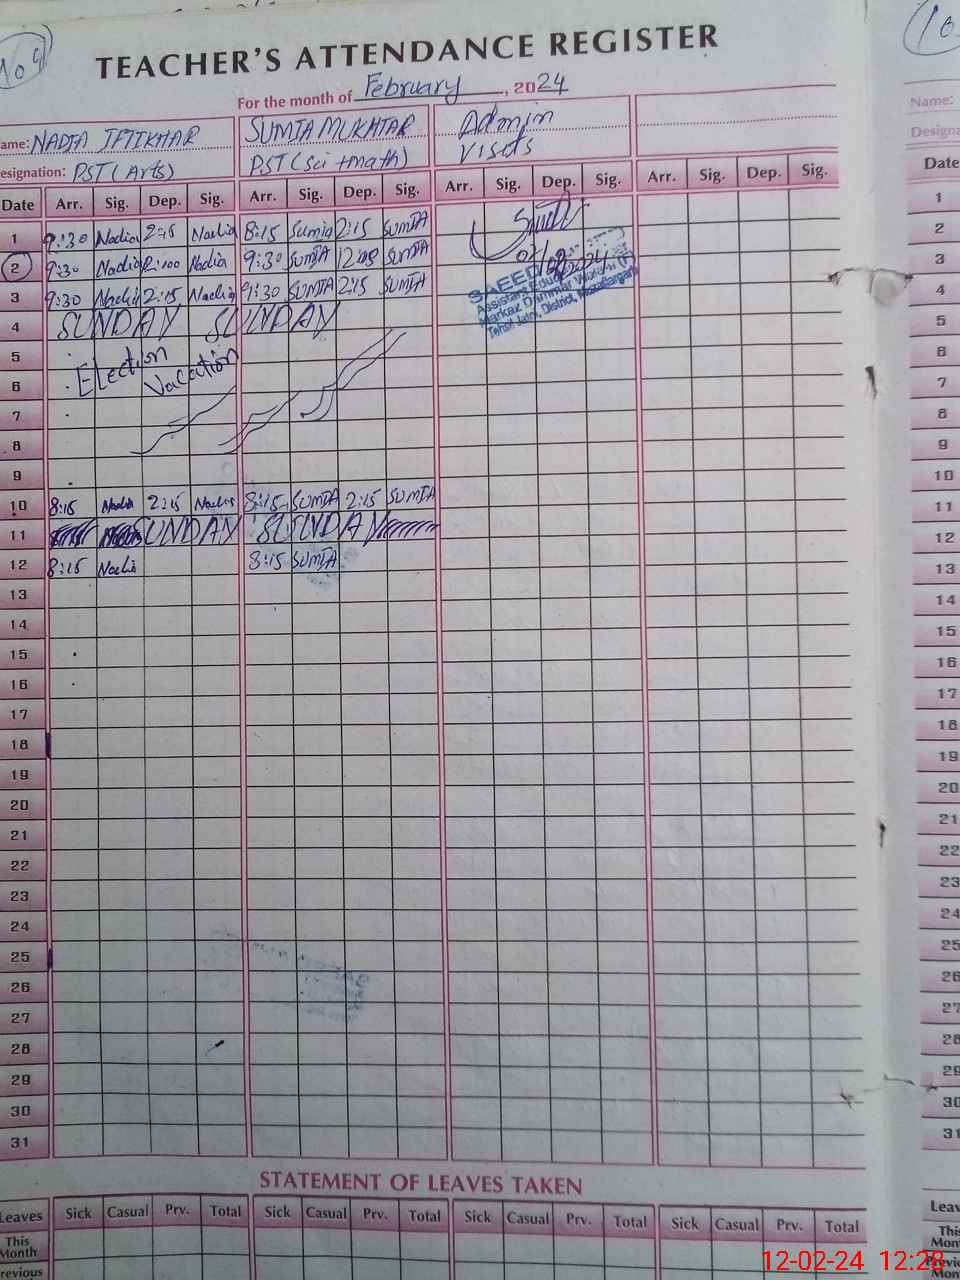 No 9
TEACHER'S ATTENDANCE REGISTER
For the month of February, 2024
ame: NADIA IFTIKHAR SUMIA MUKHTAR Admin
Visits
esignation: PST (Arts) PST (sci + math)
Date Arr. Sig. Dep. Sig. Arr. Sig. Dep. Sig. Arr. Sig. Dep. Sig. Arr. Sig. Dep. Sig.
1 9:30 Nadia 2:15 Nadia 8:15 Sumia 2:15 SUMIA
2 9:30 Nadia 12:00 Nadia 9:30 SUMIA SUMIA
3 9:30 Nadia 2:15 Nadia 9:30 SUMIA 2:15 SUMIA
SAEED
Assistant
Markaz
Tehsil Jatoi, District, Muzaffargarh
4 SUNDAY SUNDAY
5 Election
6 Vacation
7
8
9
10 8:15 Nadia 2:15 Nadia 8:15 SUMIA 2:15 SUMIA
11 SUNDAY SUNDAY
12 8:15 Nadia 8:15 SUMIA
13
14
15
16
17
18
19
20
21
22
23
24
25
26
27
28
29
30
31
STATEMENT OF LEAVES TAKEN
Leaves Sick Casual Prv. Total Sick Casual Prv. Total Sick Casual Prv. Total Sick Casual Prv. Total
This
Month
revious
10
Name:
Designa
Date
1
2
3
4
5
6
7
8
9
10
11
12
13
14
15
16
17
18
19
20
21
22
23
24
25
26
27
28
29
30
31
Leav
This
Mon
Previo
12-02-24 12:28